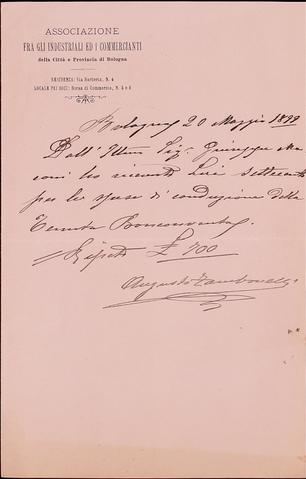 ASSOCIAZIONE
FRA GLI INDUSTRIALI ED I COMMERCIANTI
della Città e Provincia di Bologna
RESIDENZA: Via Barberia, N. 4
LOCALE PEI SOCI: Borsa di Commercio, N. 5 e 6
Bologna 20 Maggio 1899
Dall' Ill.mo Sig. Giuseppe
ho ricevuto Lire settecento
per le spese di conduzione della
Tenuta
Ripeto £ 700
Augusto